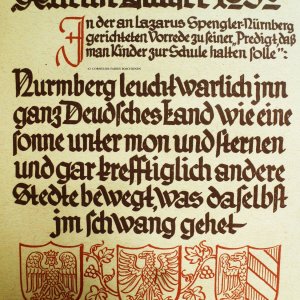 Martin Luther 1530
In der an Lazarus Spengler-Nürnberg
gerichteten Vorrede zu seiner „Predigt, daß
man Kinder zur Schule halten solle":
Nurmberg leucht warlich jnn
ganz Deudsches Land wie eine
sonne unter mon und sternen
und gar krefftiglich andere
Stedte bewegt, was daselbst
jm schwang gehet